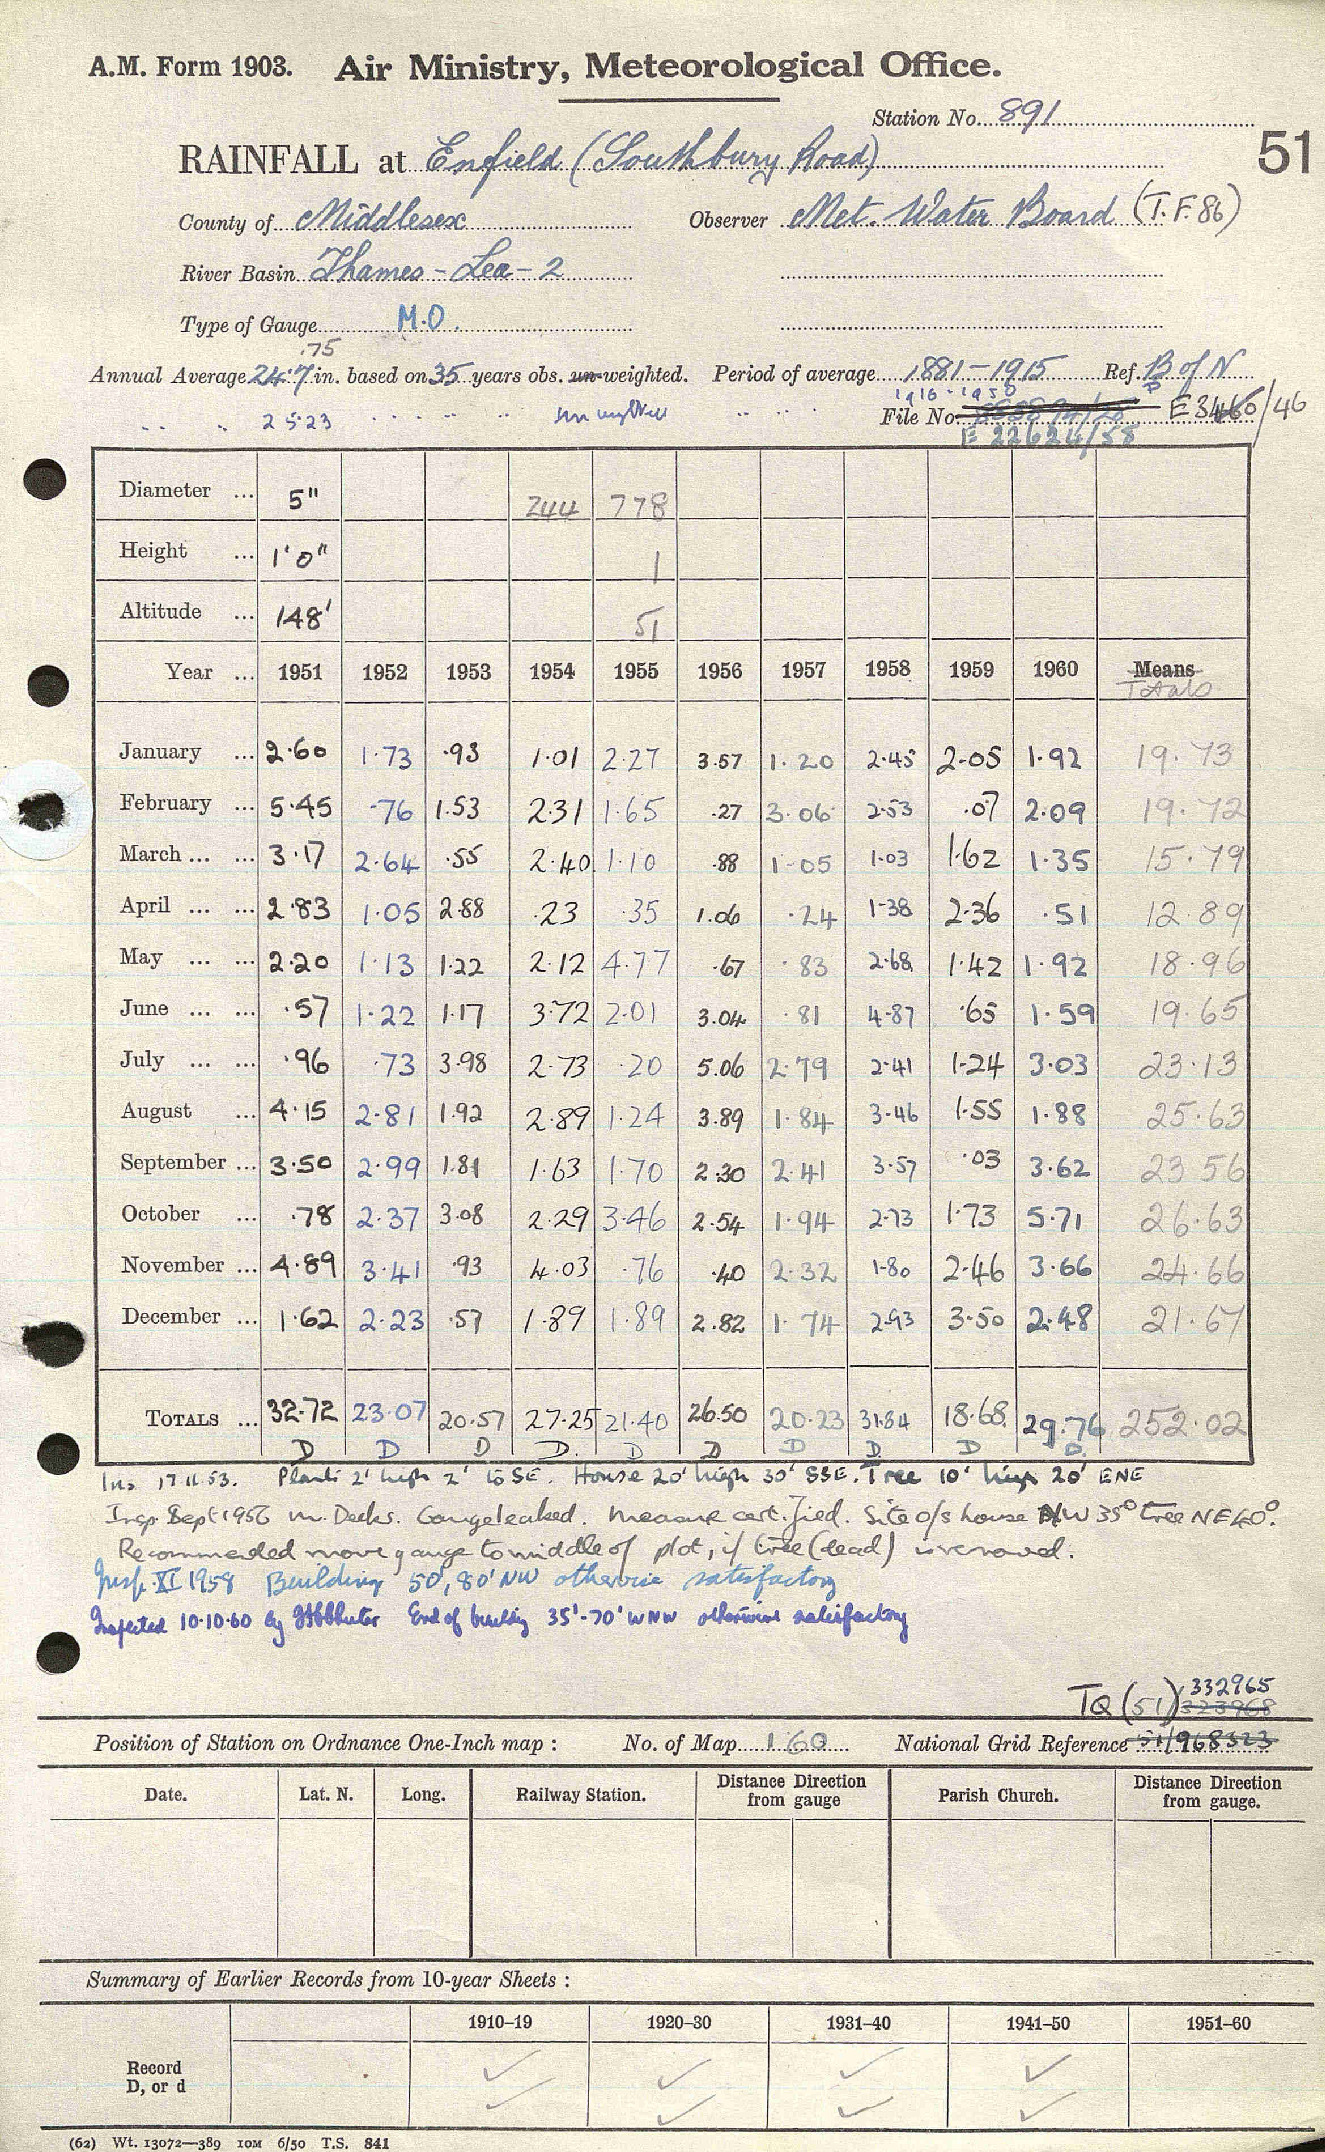 A.M. Form 1903. Air Ministry, Meteorological Office.
Station No. 891
51
RAINFALL at Enfield (Southbury Road)
County of Middlesex Observer Met. Water Board (T.F. 86)
River Basin Thames - Lea - 2
Type of Gauge M.O.
.75
Annual Average 24.7 in. based on 35 years obs. un-weighted. Period of average 1881-1915 Ref. B of N
" " 25.23 " " " unweighted " " 1916-1950 File No. E 3460/46
E 22624/58
Diameter ... 5" 244 778
Height ... 1'0" 1
Altitude ... 148' 51
Year ... 1951 1952 1953 1954 1955 1956 1957 1958 1959 1960 Means
Totals
January ... 2.60 1.73 .93 1.01 2.27 3.57 1.20 2.45 2.05 1.92 19.73
February ... 5.45 .76 1.53 2.31 1.65 .27 3.06 2.53 .07 2.09 19.72
March ... ... 3.17 2.64 .55 2.40 1.10 .88 1.05 1.03 1.62 1.35 15.79
April ... ... 2.83 1.05 2.88 .23 .35 1.06 .24 1.38 2.36 .51 12.89
May ... ... 2.20 1.13 1.22 2.12 4.77 .67 .83 2.68 1.42 1.92 18.96
June ... ... .57 1.22 1.17 3.72 2.01 3.04 .81 4.87 .65 1.59 19.65
July ... ... .96 .73 3.98 2.73 .20 5.06 2.79 2.41 1.24 3.03 23.13
August ... 4.15 2.81 1.92 2.89 1.24 3.89 1.84 3.46 1.55 1.88 25.63
September ... 3.50 2.99 1.81 1.63 1.70 2.30 2.41 3.57 .03 3.62 23.56
October ... .78 2.37 3.08 2.29 3.46 2.54 1.94 2.73 1.73 5.71 26.63
November ... 4.89 3.41 .93 4.03 .76 .40 2.32 1.80 2.46 3.66 24.66
December ... 1.62 2.23 .57 1.89 1.89 2.82 1.74 2.93 3.50 2.48 21.67
TOTALS ... 32.72 23.07 20.57 27.25 21.40 26.50 20.23 31.84 18.68 29.76 252.02
D D D D. D D D D D D.
Ins 17.11.53. Plants 2' high 2' to SE. House 20' high 30' SSE. Tree 10' high 20' ENE
Insp. Sept 1956 Gauge leaked. Measure certified. Site o/s house NW 35° tree NE 40°.
Recommended move gauge to middle of plot, if tree (dead) is removed.
Insp. XI 1958 Building 50', 80' NW otherwise satisfactory
Inspected 10.10.60 by End of building 35'-70' WNW otherwise satisfactory
TQ (51) 332965
323968
Position of Station on Ordnance One-Inch map : No. of Map 160 National Grid Reference 51/968323
Date. Lat. N. Long. Railway Station. Distance Direction from gauge Parish Church. Distance Direction from gauge.
Summary of Earlier Records from 10-year Sheets :
1910–19 1920–30 1931–40 1941–50 1951–60
Record
D, or d
(62) Wt. 13072—389 10M 6/50 T.S. 841